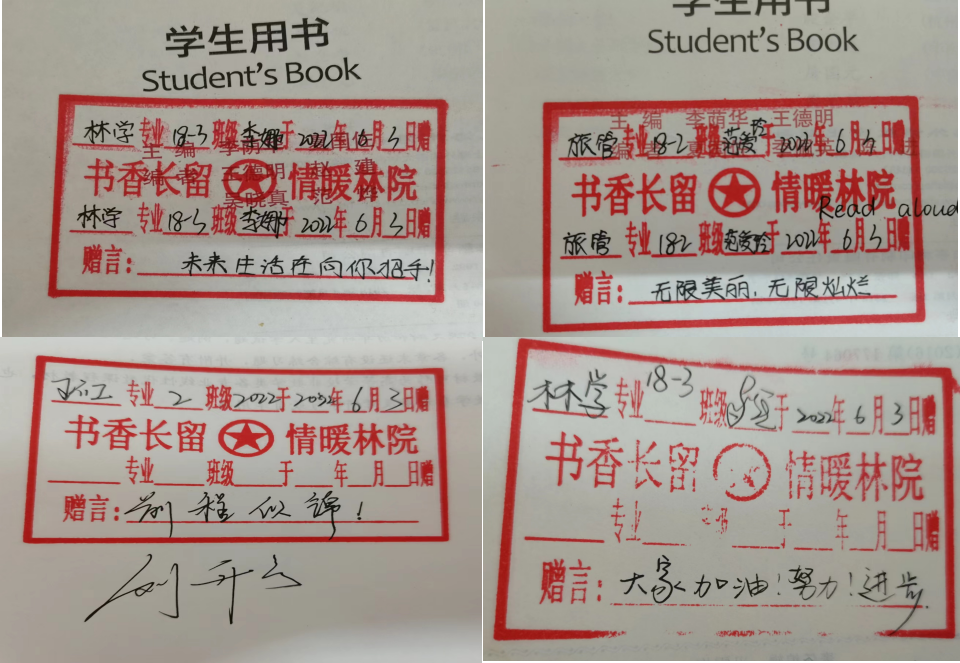 学生用书
Student's Book
林学专业18-3班级李娜于2022年6月3日赠
主编
书香长留 情暖林院
林学专业18-3班级李娜于2022年6月3日赠
赠言：未来生活在向你招手！
学生用书
Student's Book
主编 李萌华 王德明
旅管专业18-2班级范爱玲于2022年6月3日赠
书香长留 情暖林院
Read aloud
旅管专业18-2班级范爱玲于2022年6月3日赠
赠言：无限美丽，无限灿烂
专业2班级2022于2022年6月3日赠
书香长留 情暖林院
专业 班级 于 年 月 日赠
赠言：前程似锦！
林学专业18-3班级 于2022年6月3日赠
书香长留 情暖林院
专业 班级 于 年 月 日赠
赠言：大家加油！努力！进步